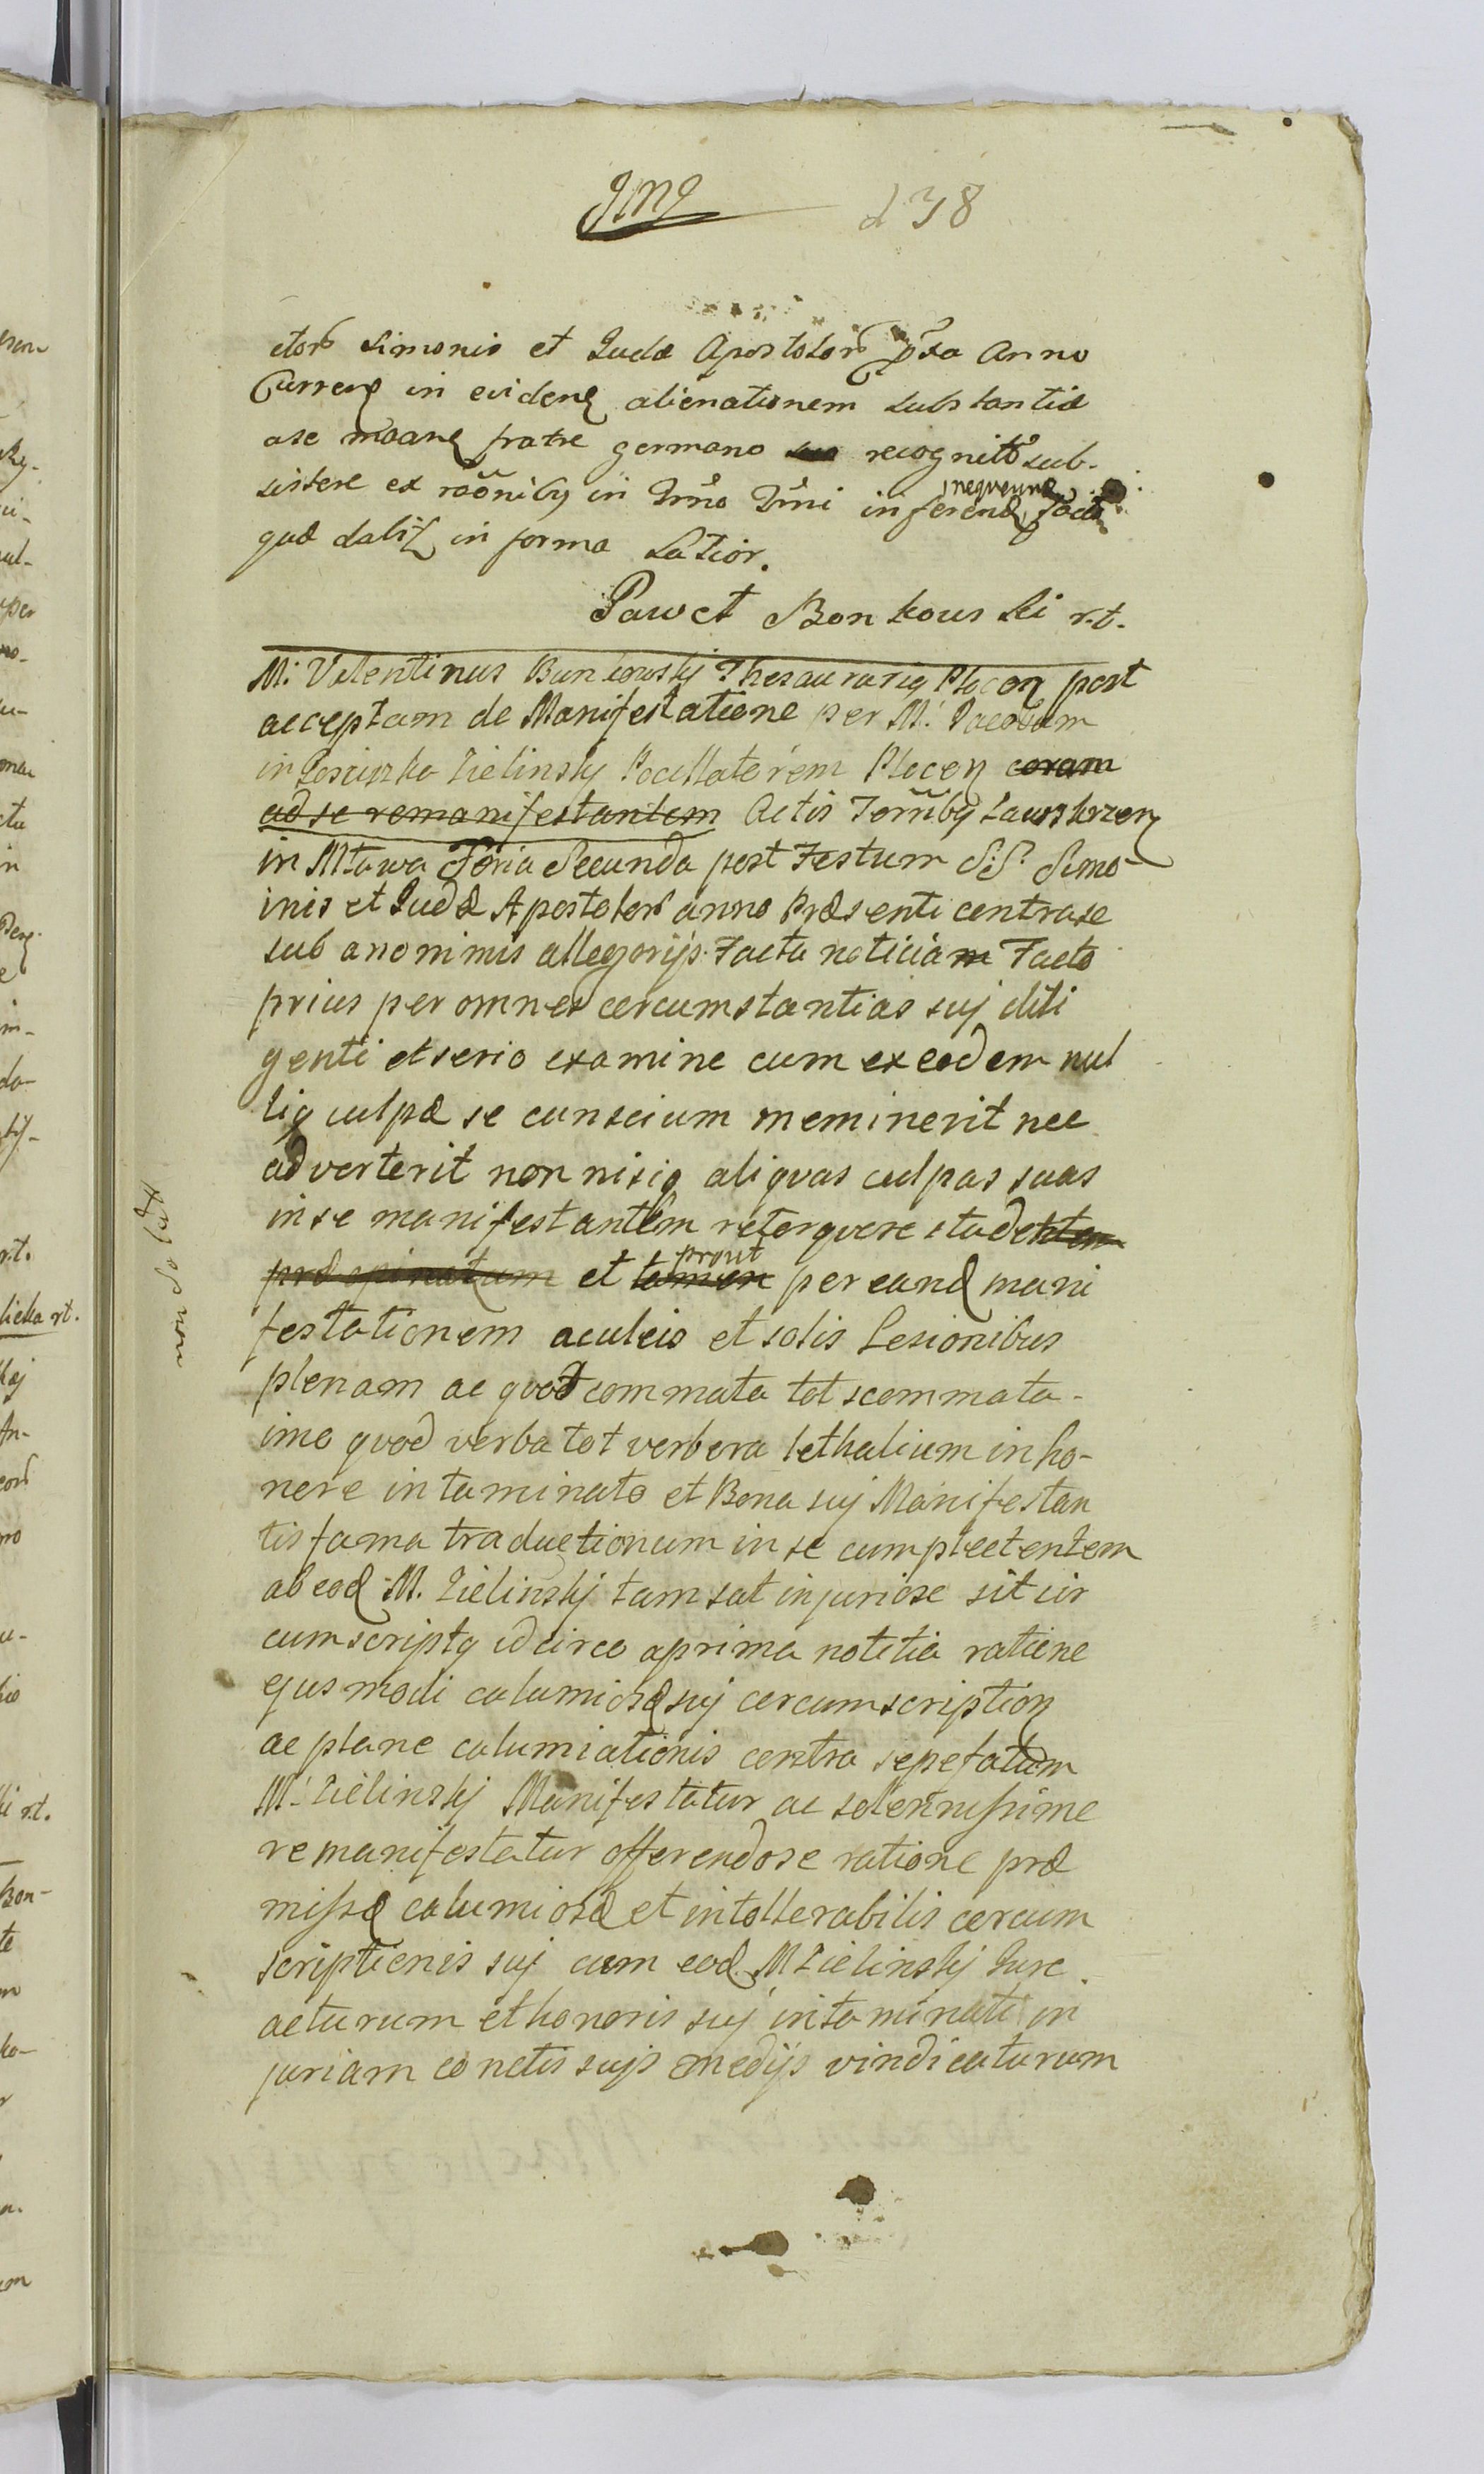 238
ctorũ Simonis et Judæ Apostolorũ pxta Anno
Curren in eviden alienationem substantiæ
a se moane fratre germano suo recognito sub-
sistere ex raõniby in Trño Trñi inferend nequeund facta
quæ dabit in forma Latior.
Paweł Bonkowski r.t.
M: Valentinus Bunkowskj Thesaurariq Plocen post
acceptam de Manifestatione per M: Jacobum
in Kosciuszka Zielinskj Pocillatorem Plocen coram
ad se remanifestantem Actis Terrñby Zawskrzen
in Mława Feria Secunda post Festum S.S. Simo
inis et Judæ Apostolorũ anno Præsenti contra se
sub anonimis allegorijs Facta noticiam Facto
prius per omnes cercumstantias suj dili
genti et serio examine cum ex eodem nul
liq culpæ se cunscium meminerit nec
adverterit non nisiq aliquas culpas suas
in se manifestantem retorquere studentem
præopinatum et tamen prout per eand mani
festationem aculeis et solis Lesionibus
plenam ac quot commata tot scommata
imo quod verba tot verbera lethalium in ho-
nore intaminato et Bona suj Manifestan
tis fama traductionum in se cumplectentem
ab eod M. Zielinskj tam sat injuriose sit cir
cumscriptq idcirco a prima notitia ratione
ejusmodi calumiosæ suj cercumscription
ac plane calumiationis contra sepefatum
M: Zielinskj Manifestatur ac solennissime
remanifestatur offerendo se ratione præ
missæ calumiosæ et intollerabilis cercum
scriptionis suj cum eod M Zielinskj Jure
acturum et honoris suj intaminati in
juriam conctis sujs medijs vindicaturum